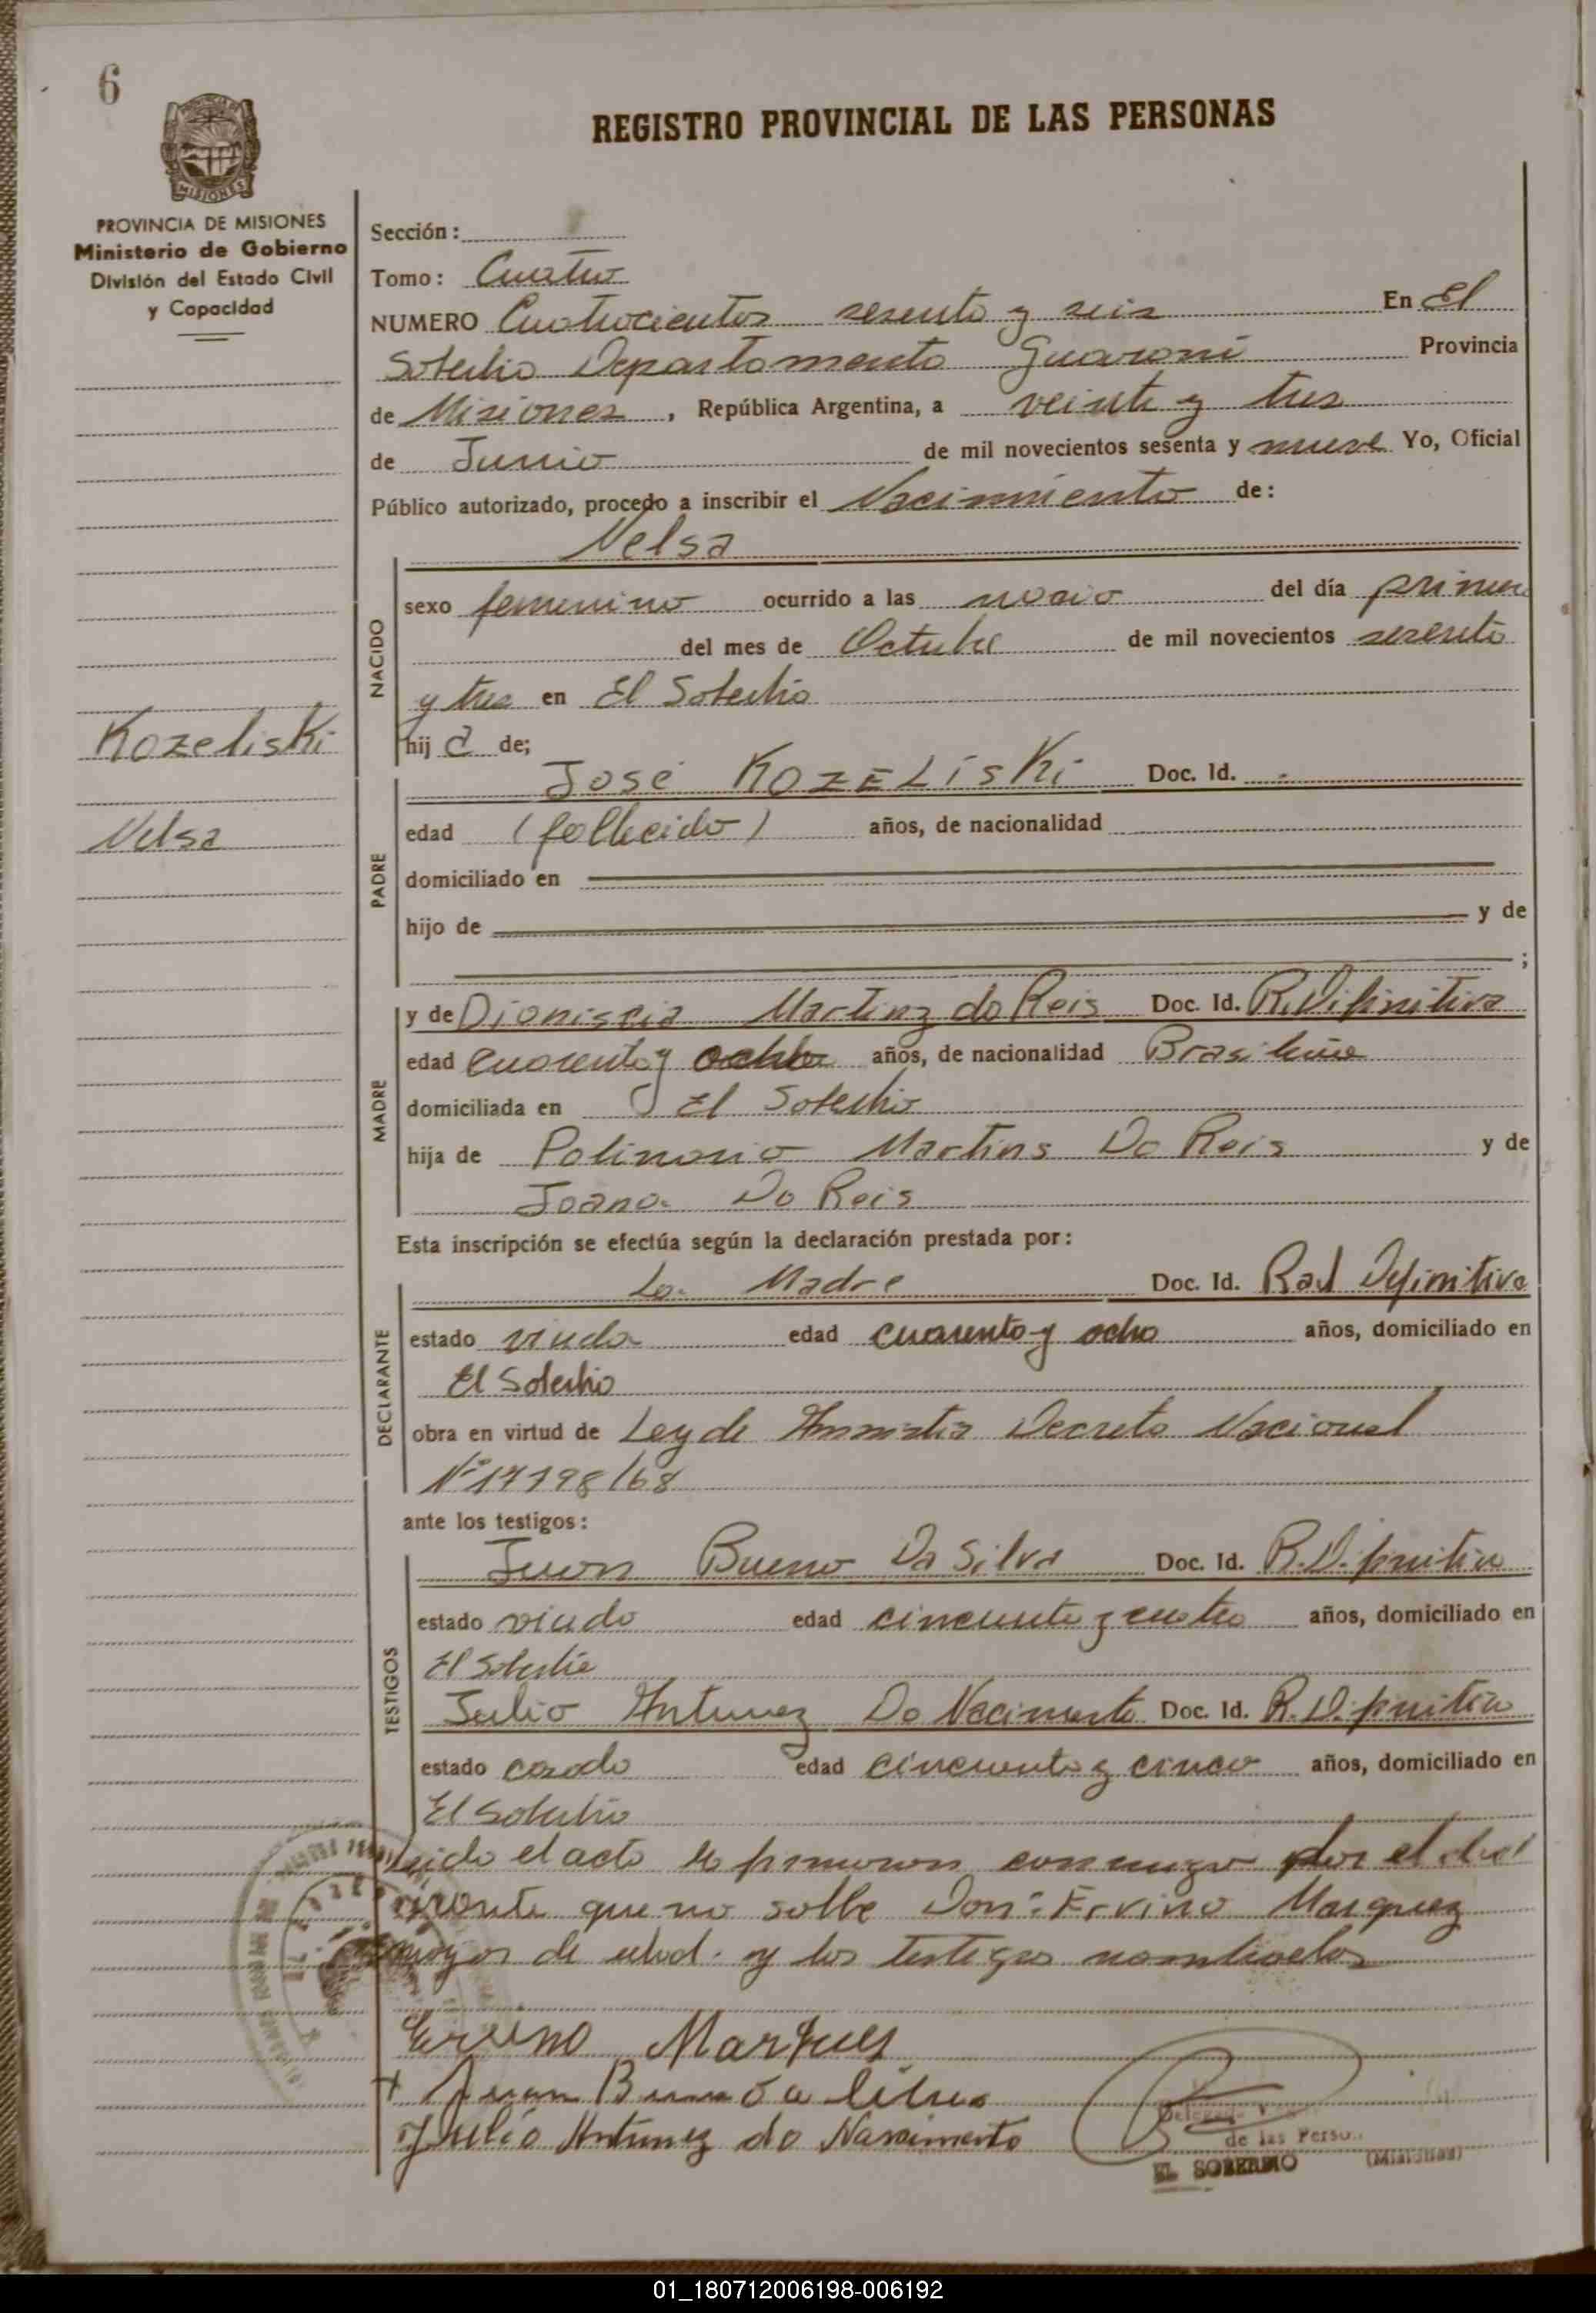 6
REGISTRO PROVINCIAL DE LAS PERSONAS
MISIONES
PROVINCIA DE MISIONES
Ministerio de Gobierno
División del Estado Civil
y Capacidad
Sección:
Tomo: Cuatro
NUMERO Cuatrocientos sesenta y seis En El
Soberbio Departamento Guarani Provincia
de Misiones, República Argentina, a veinte y tres
de Junio de mil novecientos sesenta y nueve Yo, Oficial
Público autorizado, procedo a inscribir el Nacimiento de:
Nelsa
NACIDO
sexo femenino ocurrido a las del día primero
del mes de Octubre de mil novecientos sesenta
y tres en El Soberbio
hij a de;
Kozeliski
Nelsa
PADRE
José KOZELISKi Doc. Id. -
edad (fallecido) años, de nacionalidad
domiciliado en
hijo de y de
;
MADRE
y de Dioniscia Martinz do Reis Doc. Id. R. Difinitiva
edad cuarenta y ocho años, de nacionalidad Brasileña
domiciliada en El Soberbio
hija de Polinario Martins Do Reis y de
Joana Do Reis
Esta inscripción se efectúa según la declaración prestada por:
DECLARANTE
La Madre Doc. Id. Rad Definitiva
estado viuda edad cuarenta y ocho años, domiciliado en
El Soberbio
obra en virtud de Ley de Amnistia Decreto Nacional
Nº 17198/68
ante los testigos:
TESTIGOS
Juan Bueno Da Silva Doc. Id. R. Difinitiva
estado viudo edad cincuenta y cuatro años, domiciliado en
El Soberbio
Julio Antunez Do Nacimento Doc. Id. R. Difinitiva
estado casado edad cincuenta y cinco años, domiciliado en
El Soberbio
Leido el acto la firmaron conmigo por el decl
arante que no sabe Don: Ervino Marquez
mayor de edad. y los testigos nombrados
Ervino Marques
+ Juan Bueno da silva
Julio Antunez do Nassimento
de las Perso
EL SOBERBIO (Misiones)
01_180712006198-006192